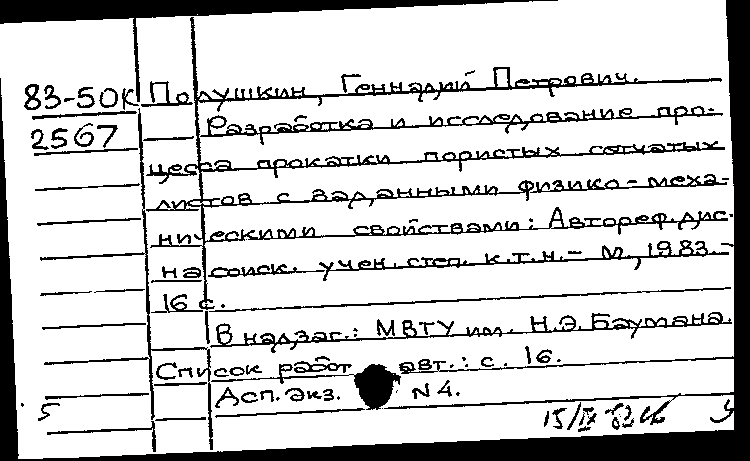 83-50К Полушкин, Геннадий Петрович.
2567 Разработка и исследование про-
цесса прокатки пористых сетчатых
листов с заданными физико-меха-
ническими свойствами: Автореф. дис.
на соиск. учен. степ. к.т.н. - М., 1983. -
16 с.
В надзаг.: МВТУ им. Н.Э. Баумана.
Список работ авт.: с. 16.
Асп. экз. N 4.
5 15/IV